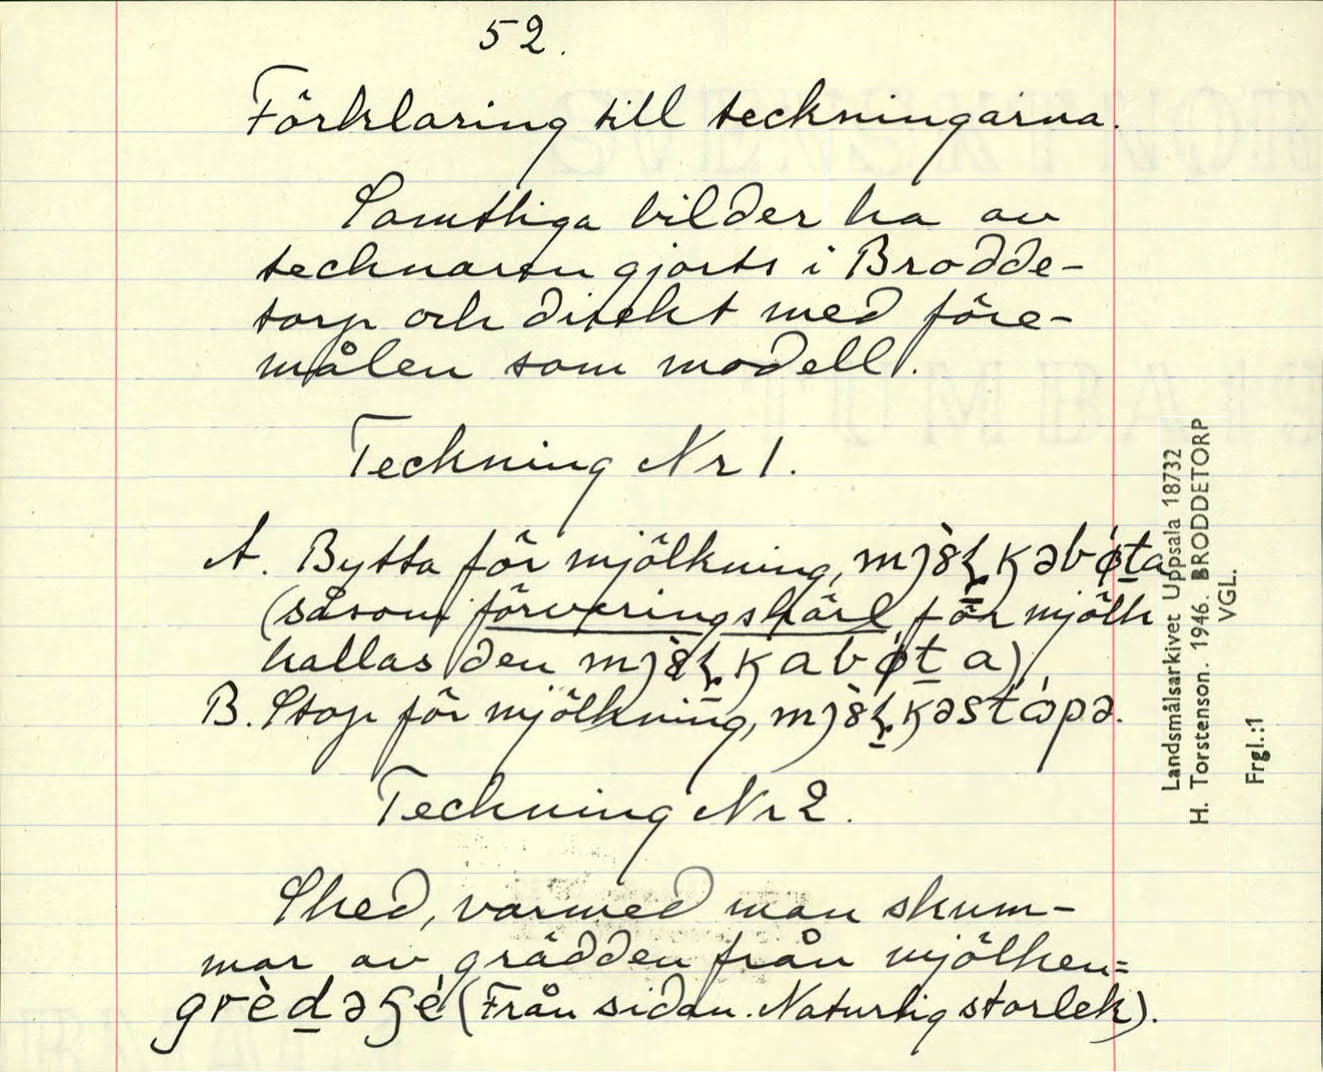 52.
Förklaring till teckningarna.
Samtliga bilder ha av
tecknaren gjorts i Brodde-
torp och direkt med före-
målen som modell.
Teckning Nr 1.
A. Bytta för mjölkning,
(såsom förvaringskärl för mjölk
kallas den
B. Stop för mjölkning,
Teckning Nr 2.
Sked, varmed man skum-
mar av grädden från mjölken=
(Från sidan. Naturlig storlek).
Landsmålsarkivet Uppsala 18732
H. Torstenson. 1946. BRODDETORP
VGL.
Frgl.:1